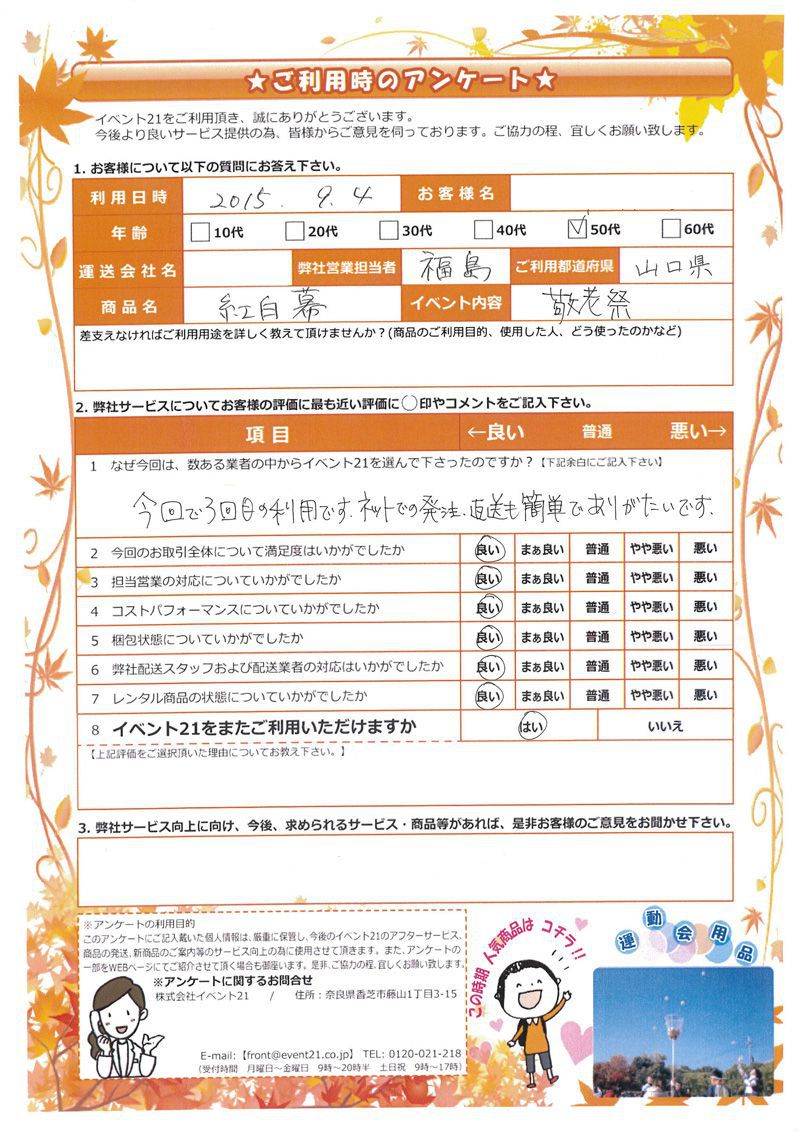 ★ご利用時のアンケート★
イベント21をご利用頂き、誠にありがとうございます。
今後より良いサービス提供の為、皆様からご意見を伺っております。ご協力の程、宜しくお願い致します。
1. お客様について以下の質問にお答え下さい。
利用日時 2015. 9. 4 お客様名
年齢 10代 20代 30代 40代 50代 60代
運送会社名 弊社営業担当者 福島 ご利用都道府県 山口県
商品名 紅白幕 イベント内容 敬老祭
差支えなければご利用用途を詳しく教えて頂けませんか？(商品のご利用目的、使用した人、どう使ったのかなど)
2. 弊社サービスについてお客様の評価に最も近い評価に○印やコメントをご記入下さい。
項目 ←良い 普通 悪い→
1 なぜ今回は、数ある業者の中からイベント21を選んで下さったのですか？【下記余白にご記入下さい】
今回で3回目の利用です。ネットでの発注、直送も簡単でありがたいです。
2 今回のお取引全体について満足度はいかがでしたか 良い まぁ良い 普通 やや悪い 悪い
3 担当営業の対応についていかがでしたか 良い まぁ良い 普通 やや悪い 悪い
4 コストパフォーマンスについていかがでしたか 良い まぁ良い 普通 やや悪い 悪い
5 梱包状態についていかがでしたか 良い まぁ良い 普通 やや悪い 悪い
6 弊社配送スタッフおよび配送業者の対応はいかがでしたか 良い まぁ良い 普通 やや悪い 悪い
7 レンタル商品の状態についていかがでしたか 良い まぁ良い 普通 やや悪い 悪い
8 イベント21をまたご利用いただけますか はい いいえ
【上記評価をご選択頂いた理由についてお教え下さい。】
3. 弊社サービス向上に向け、今後、求められるサービス・商品等があれば、是非お客様のご意見をお聞かせ下さい。
※アンケートの利用目的
このアンケートにご記入戴いた個人情報は、厳重に保管し、今後のイベント21のアフターサービス、
商品の発送、新商品のご案内等のサービス向上の為に使用させて頂きます。また、アンケートの
一部をWEBページにてご紹介させて頂く場合も御座います。是非、ご協力の程、宜しくお願い致します。
※アンケートに関するお問合せ
株式会社イベント21 / 住所：奈良県香芝市藤山1丁目3-15
E-mail：【front@event21.co.jp】 TEL: 0120-021-218
(受付時間 月曜日～金曜日 9時～20時半 土日祝 9時～17時)
この時期 人気商品は コチラ!!
運動会用品